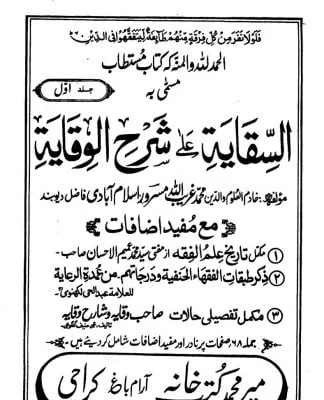 فلولا نفر من كل فرقة منهم طائفة ليتفقهوا فى الدين
الحمد للہ والمنہ کہ کتاب مستطاب
مسمّٰی بہ
جلد اوّل
السِّقاية علىٰ شَرح الوِقاية
مؤلفہ: خادم العلوم والدین محمد غریب اللہ مسرور اسلام آبادی فاضل دیوبند
مع مفید اضافات
① مکمل تاریخ علم الفقہ از مفتی سید محمد عمیم الاحسان صاحب-
② ذکر طبقات الفقہاء الحنفیة ودرجاتهم. من عمدة الرعایة
للعلامة عبد الحی لکھنوی-
③ مکمل تفصیلی حالات صاحب وقایہ وشارح وقایہ
جملہ ۶۸ صفحات پر نادر اور مفید اضافات شامل کر دیئے ہیں-
میر محمد کتب خانہ آرام باغ کراچی